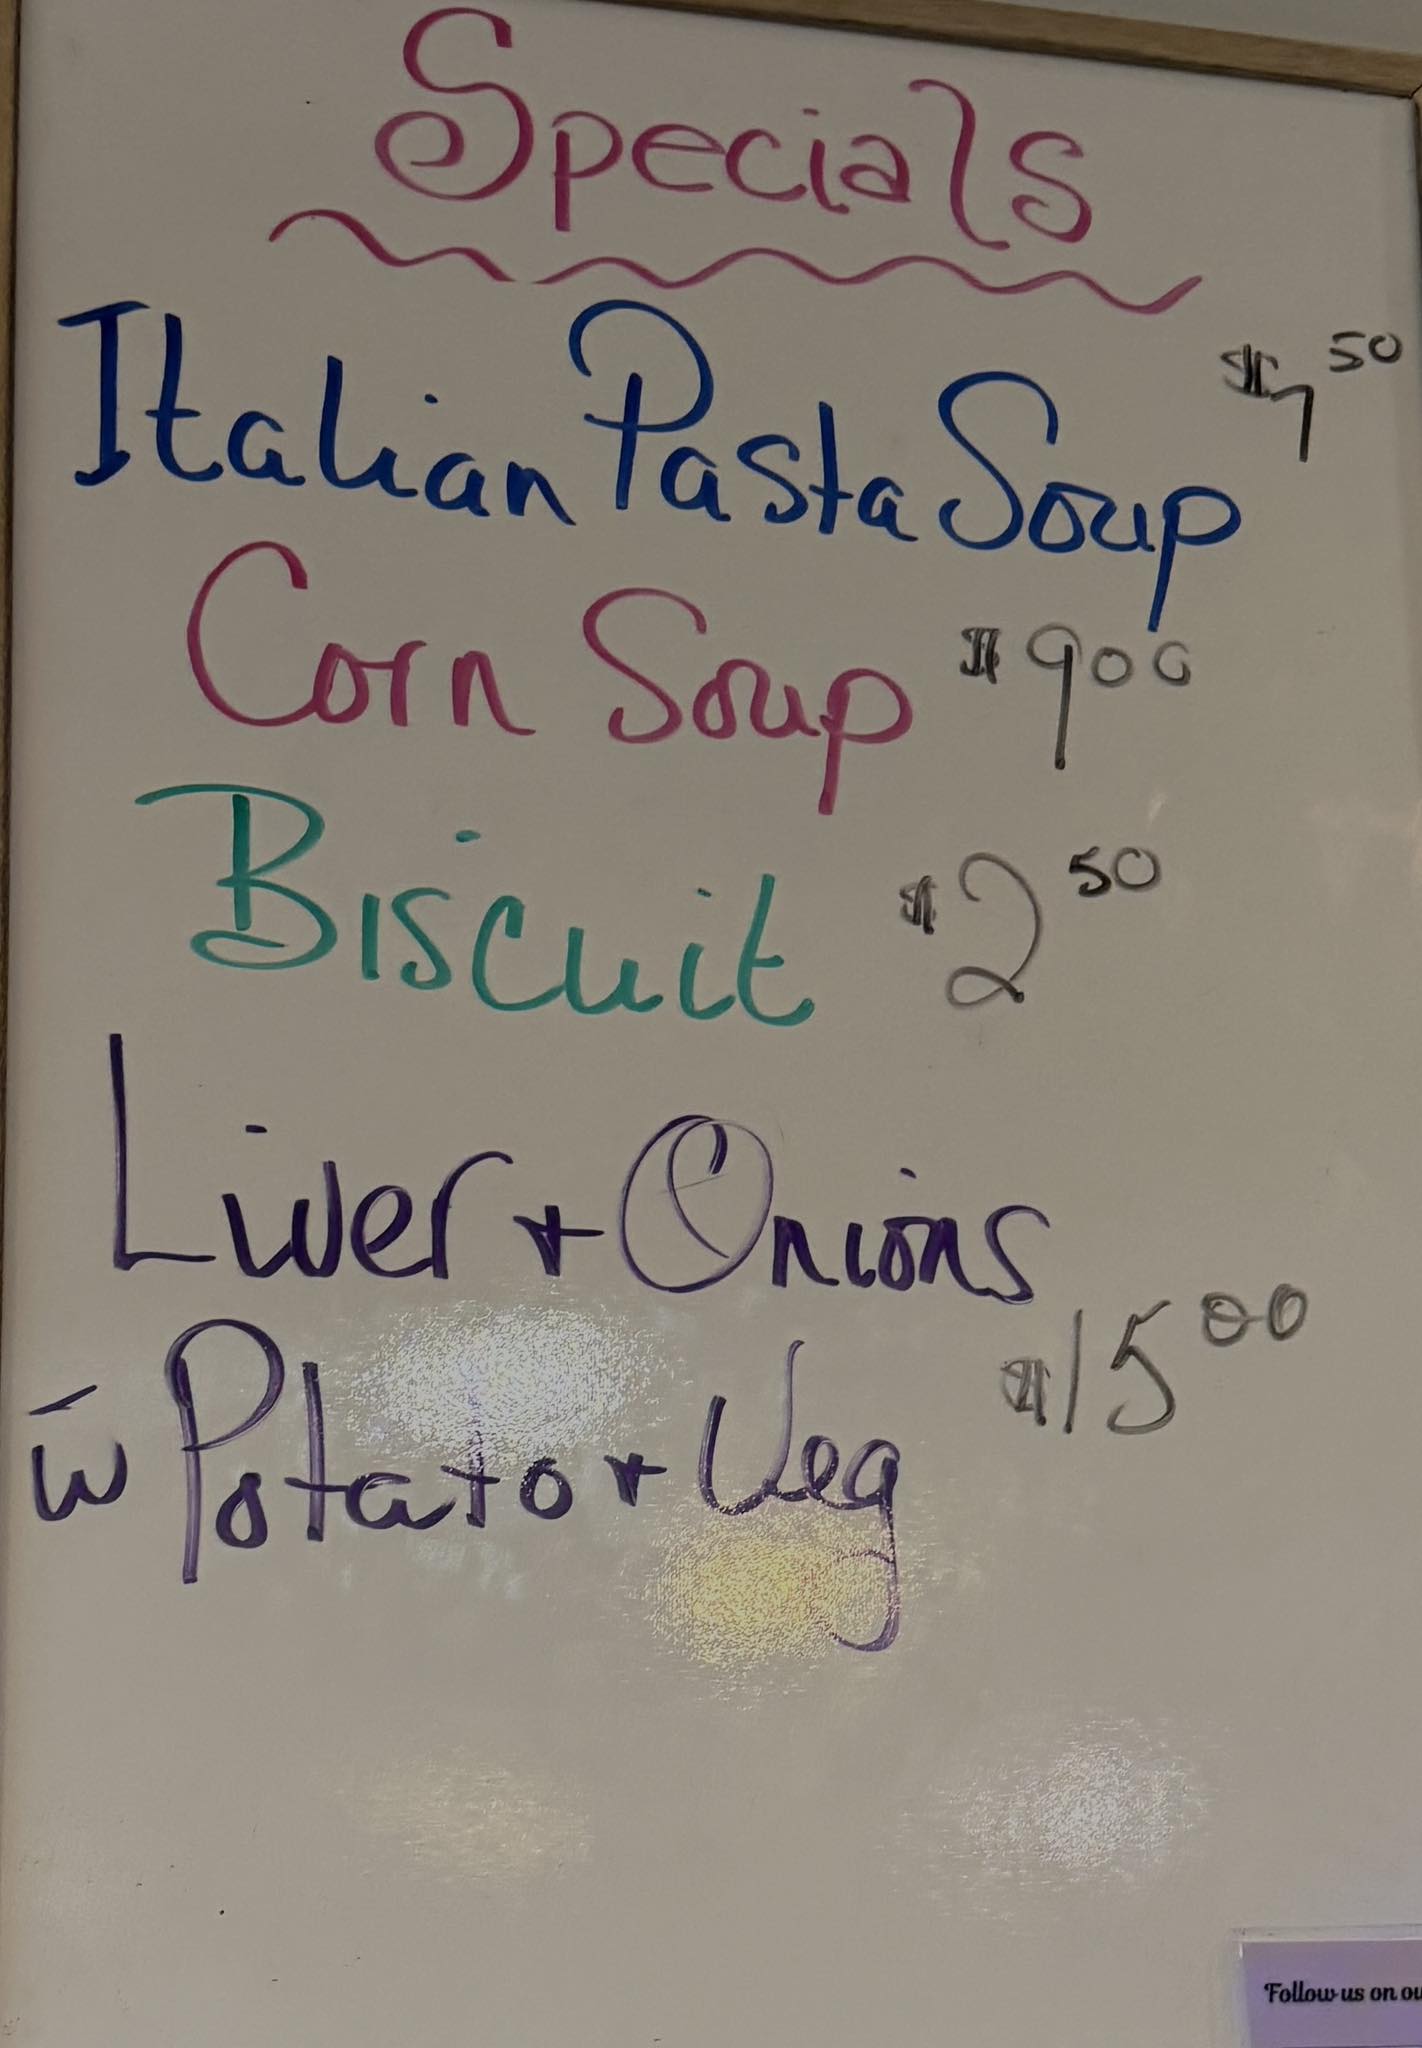 Specials
Italian Pasta Soup $7.50
Corn Soup $9.00
Biscuit $2.50
Liver + Onions
w Potato + Veg $15.00
Follow us on